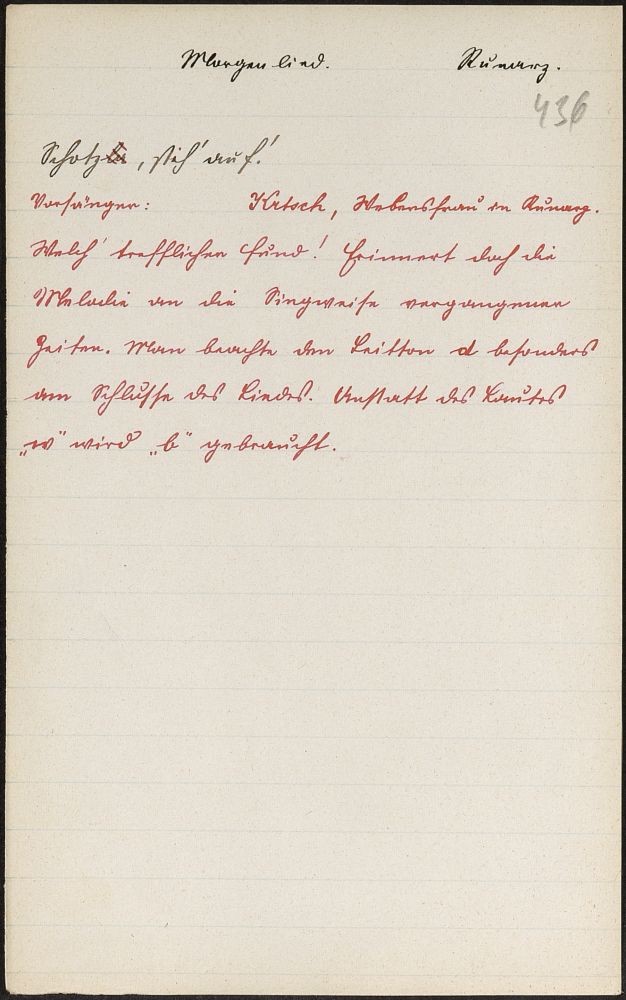 Morgenlied. Runarz.
436
Schatzla, steh' auf!
Vorsänger: Krtsch, Webersfrau in Runarz.
Welch' trefflicher Fund! Erinnert doch die
Melodie an die Singweise vergangener
Zeiten. Man beachte den Leitton d besonders
am Schlusse des Liedes. Anstatt des Lautes
„w" wird „b" gebraucht.